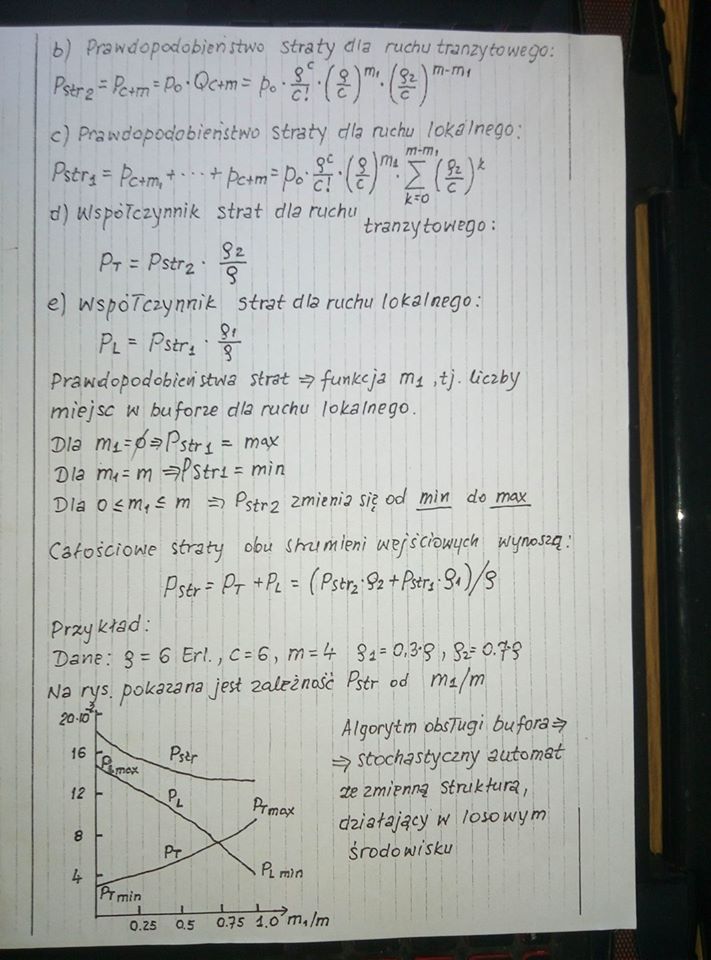 b) Prawdopodobieństwo straty dla ruchu tranzytowego:
Pstr2 = Pc+m = p0 · Qc+m = p0 · ρ^c/c! · (ρ/c)^m1 · (ρ2/c)^m-m1
c) Prawdopodobieństwo straty dla ruchu lokalnego:
Pstr1 = Pc+m1 + · · · + pc+m = p0 · ρ^c/c! · (ρ/c)^m1 · m-m1 ∑ k=0 (ρ2/c)^k
d) Współczynnik strat dla ruchu
tranzytowego:
PT = Pstr2 · ρ2/ρ
e) Współczynnik strat dla ruchu lokalnego:
PL = Pstr1 · ρ1/ρ
Prawdopodobieństwa strat ⇒ funkcja m1, tj. liczby
miejsc w buforze dla ruchu lokalnego.
Dla m1=∅ ⇒ Pstr1 = max
Dla m1 = m ⇒ Pstr1 = min
Dla 0 ≤ m1 ≤ m ⇒ Pstr2 zmienia się od min do max
Całościowe straty obu strumieni wejściowych wynoszą:
Pstr = PT + PL = (Pstr2·ρ2 + Pstr1·ρ1)/ρ
Przykład:
Dane: ρ = 6 Erl., c = 6, m = 4 ρ1 = 0,3·ρ, ρ2 = 0.7·ρ
Na rys. pokazana jest zależność Pstr od m1/m
20·10^-2
16
12
8
4
Pstr
PLmax
PL
PTmax
PT
PL min
PT min
0.25 0.5 0.75 1.0 m1/m
Algorytm obsługi bufora ⇒
⇒ stochastyczny automat
ze zmienną strukturą,
działający w losowym
środowisku